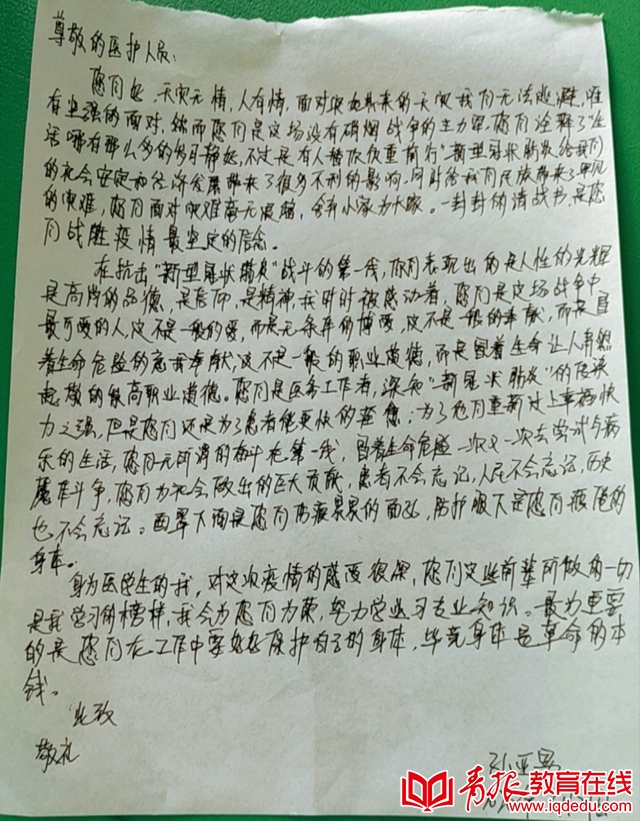 尊敬的医护人员:
您们好,天灾无情,人有情,面对突如其来的天灾我们无法逃避,唯
有坚强的面对,然而您们是这场没有硝烟战争的主力军,您们诠释了"生
活哪有那么多的岁月静好,不过是有人替你负重前行""新型冠状肺炎给我们
的社会安定和经济发展带来了很多不利的影响,同时给我们民族带来了
的灾难,您们面对灾难毫无畏惧,舍弃小家为大家。一封封的请战书,是您
们战胜疫情最坚定的信念。
在抗击"新型冠状肺炎"战斗的第一线,你们表现出的是人性的光辉
是高尚的品德,是信仰,是精神,我时时被感动着,您们是这场战争中
最可爱的人,这不是一般的爱,而是无条件的博爱,这不是一般的奉献,而是冒
着生命危险的忘我奉献,这不是一般的职业道德,而是冒着生命让人肃然
起敬的极高职业道德。您们是医务工作者,深知"新冠状肺炎"的传染
力之强,但是您们还是为了患者能更快的痊愈,为了他们重新过上幸福快
乐的生活,您们无所谓的奋斗在第一线,冒着生命危险一次又一次去尝试与病
魔作斗争,您们为社会做出的巨大贡献,患者不会忘记,人民不会忘记,历史
也不会忘记。面罩下面是您们伤痕累累的面孔,防护服下是您们疲倦的
身体。
身为医学生的我,对这次疫情的感受很深,您们这些前辈所做的一切
是我学习的榜样,我会为您们为荣,努力学业习专业知识。最为重要
的是您们在工作中要好好保护自己的身体,毕竟身体是革命的本
钱。
此致
敬礼
青报教育在线
www.iqdedu.com